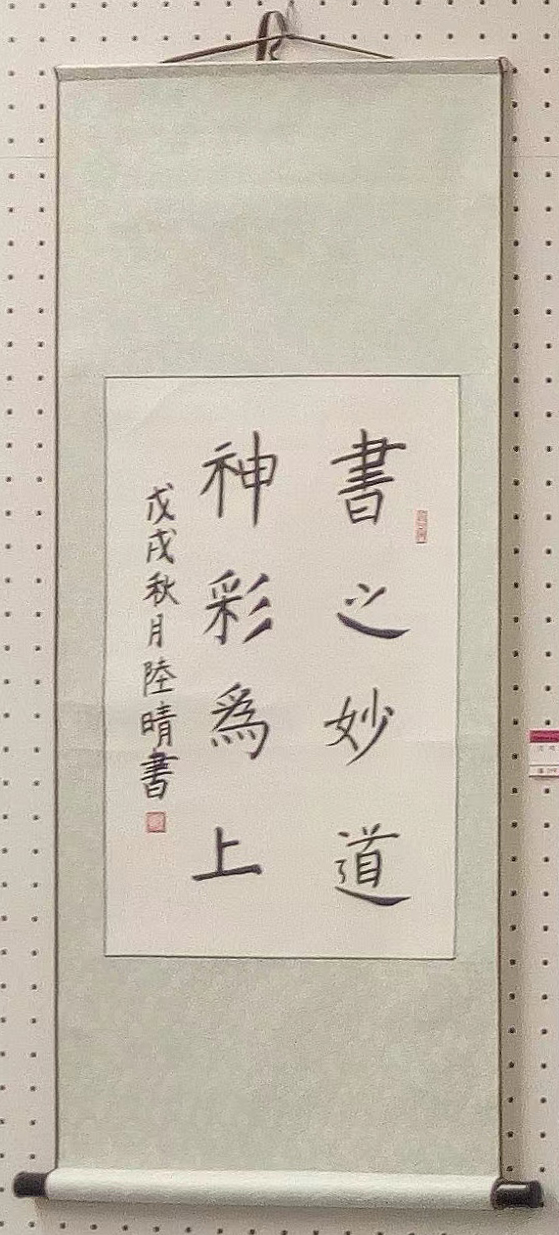 書之妙道
神彩為上
戊戌秋月陸晴書